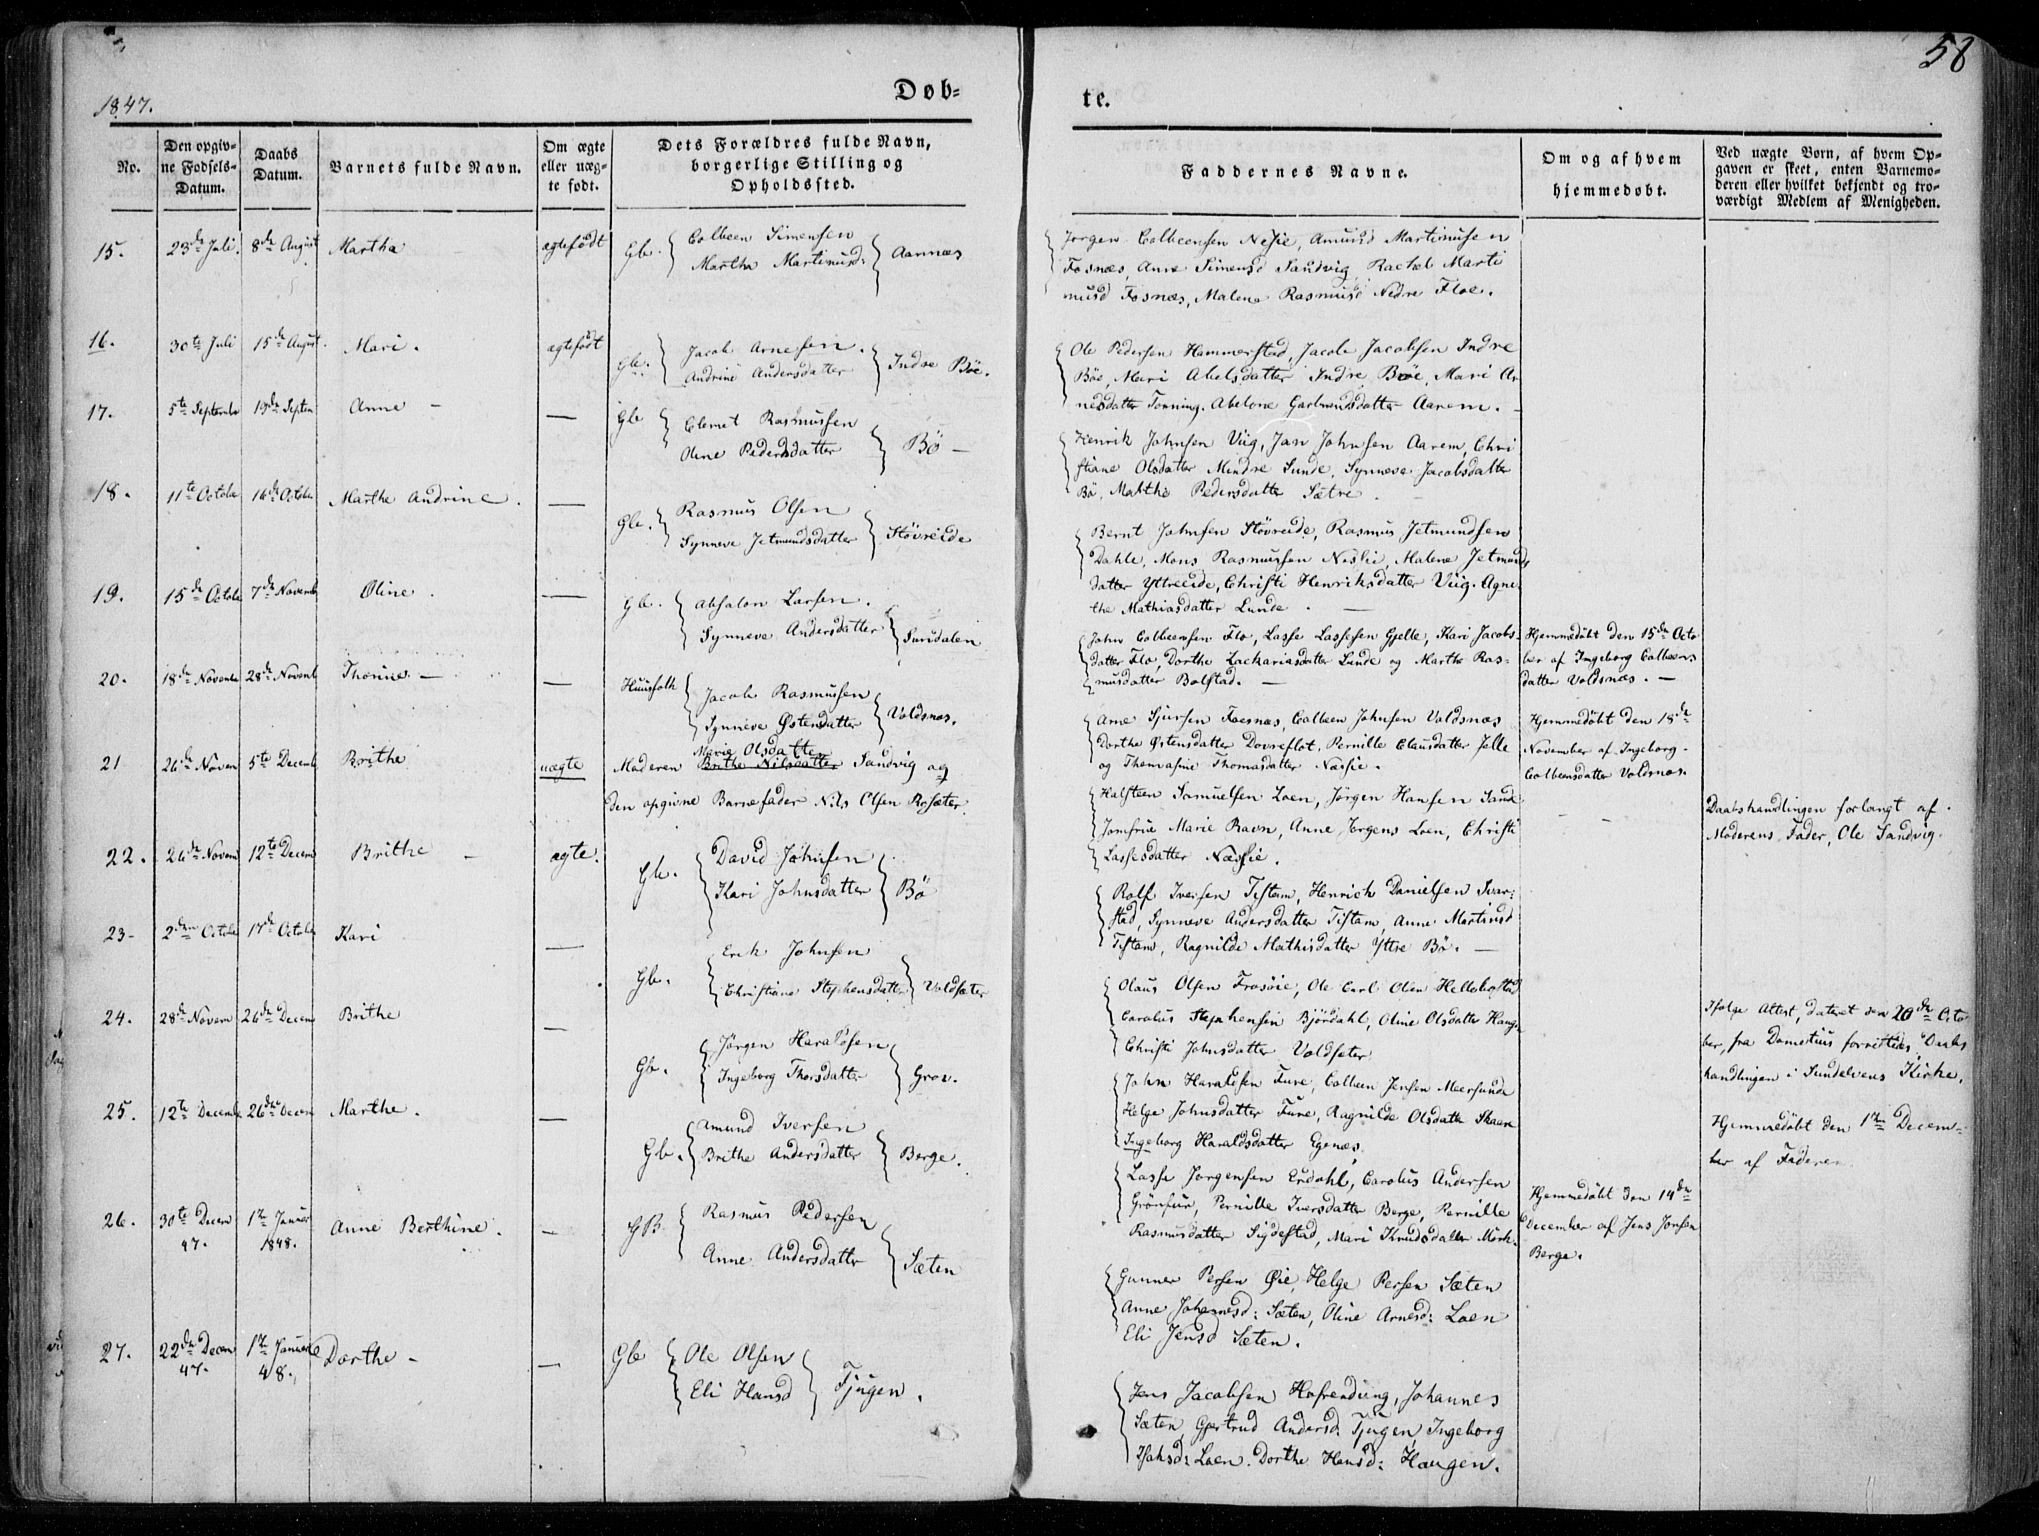 1847.
Døb=
te.
58
No.
Den opgiv-
ne Fødsels-
Datum.
Daabs
Datum.
Barnets fulde Navn.
Om ægte
eller uæg-
te født.
Dets Forældres fulde Navn,
borgerlige Stilling og
Opholdssted.
Faddernes Navne.
Om og af hvem
hjemmedøbt.
Ved uægte Børn, af hvem Op-
gaven er skeet, enten Barnemo-
deren eller hvilket bekjendt og tro-
værdigt Medlem af Menigheden.
15. 23de Juli. 8de August Martha ægtefødt Gb. Colbeen Simensen
Martha Martinusd: Aannæs
Jørgen Colbeensen Nesie, Amund Martinusen
Fosnæs, Anne Simensd Sandvig, Rachel Marti
nusd Fosnæs, Malene Rasmusd Nedre Floe.
16. 30te Juli 15de August. Mari. ægtefødt Gb. Jacob Arnesen.
Andrine Andersdatter Indre Böe.
Ole Pedersen Hammerstad, Jacob Jacobsen Indre
Böe, Mari Abelsdatter Indre Bröe, Mari Ar
nesdatter Tonning. Abelone Garlmundsdatter Aarem.
17. 5te September 19de Septem Anne — — Gb Clemet Rasmussen
Oline Pedersdatter Bö —
Henrik Johnsen Viig, Jan Johnsen Aarem, Chri
stiane Olsdatter Mindre Sunde, Synneve Jacobsdatter
Bö, Malthe Pedersdatter Sætre.
18. 11te October 16de October Marthe Andrine. — Gb. Rasmus Olsen
Synneve Jetmundsdatter Stövreide
Bernt Johnsen Stövreide, Rasmus Jetmundsen
Dahle, Mons Rasmussen Neslie, Malene Jetmunds
datter Yttreeide, Christi Henriksdatter Viig. Agne
the Mathiasdatter Lunde. —
19. 15de October 7de November Oline. — Gb. Absalon Larsen.
Synneve Andersdatter Sundalen
John Colbeensen Flo, Lasse Lassesen Gjelle, Kari Jacobs-
datter Flo, Dorthe Zachariasdatter Lunde og Marthe Ras-
musdatter Bolstad. —
Hjemmedöbt den 15de Octo
ber af Ingeborg Colbeens
datter Voldsnæs. —
20. 18de Novembr 28de Novemb Thonne. — — Huusfolk Jacob Rasmussen
Synneve Östensdatter Voldsnæs.
Arne Sjursen Foesnæs, Colbeen Johnsen Voldsnæs
Dorthe Östensdatter Dovreflot, Pernille Clausdatter Jelle
og Thomasine Thomasdatter Næssie.
Hjemmedöbt den 18de
November af Ingeborg
Colbeensdatter Voldsnæs.
21 26de Novem 5te Decemb Brithe uægte Moderen Marie Olsdatter
Brithe Nilsdatter Sandvig og
den opgivne Barnefader Nils Olsen Rosæter.
Halsteen Samuelsen Loen, Jörgen Hansen Sande
Jomfrue Marie Ravn, Anne Jörgens Loen, Christi
Lassesdatter Næssie.
Daabshandlingen forlangt af
Moderens Fader, Ole Sandvig.
22. 26de Novem 12te Decem Brithe — ægte. Gb. David Johnsen
Kari Johnsdatter Bö
Rolf Iversen Tistam, Henrich Danielsen Svar-
stad, Synneve Andersdatter Tistam, Anne Martinsd
Tistam, Ragnilde Mathisdatter Yttre Bö. —
23 2den October 17de October Kari — Gb. Erik Johnsen
Christiane Stephensdatter Voldsæter
Olaus Olsen Frosöie, Ole Carl Olsen Hellebostad
Carolus Stephensen Björdahl, Oline Olsdatter Haugen
Christi Johnsdatter Voldseter
Ifölge Attest, dateret den 20de Octo
ber, fra Domertius forrettedes Daabs
handlingen i Sundelvens Kirke.
24. 28de Novem 26de Decem Brithe — Gb. Jörgen Haraldsen
Ingeborg Thorsdatter Grov.
John Haraldsen Fure, Colbeen Jensen Meersunde
Helge Johnsdatter Fure, Ragnilde Olsdatter Skaare
Ingeborg Haraldsdatter Egenæs.
Hjemmedöbt den 1ste Decem-
ber af Faderen
25. 12te December 26de Decem Marthe. — Gb. Amund Iversen
Brithe Andersdatter Berge.
Lasse Jörgensen Endahl, Carolus Andersen
Grönfur, Pernille Iversdatter Berge, Pernille
Rasmusdatter Sigdestad, Mari Knudsdatter Mörk.
Hjemmedöbt den 14de
December af Jens Jonsen
Berge.
26. 30te Decem 47. 1te Januar 1848. Anne Berthine. — GB. Rasmus Pedersen
Anne Andersdatter Sæten
Gunner Persen Öie, Helge Persen Sæten
Anne Johannesd: Sæten, Oline Arnesd: Loen
Eli Jensd Sæten.
27. 22de Decem 47. 1te Januar 48. Dorthe — — Gb Ole Olsen
Eli Hansd Tjugen.
Jens Jacobsen Hofrendung, Johannes
Sæten, Gjertrud Andersd. Tjugen, Ingeborg
Isahsd: Loen. Dorthe Hansd: Haugen.